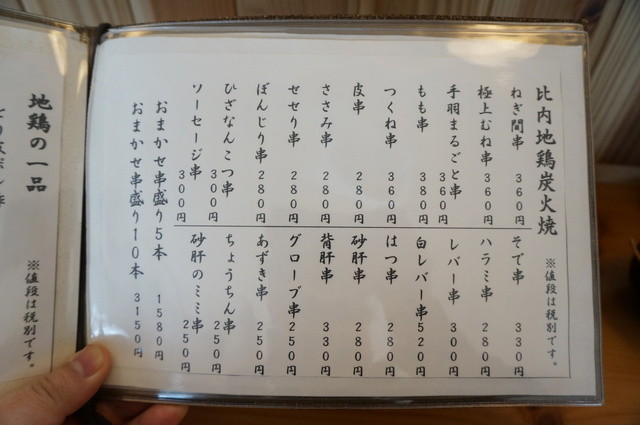 比内地鶏炭火焼
※値段は税別です。
ねぎ間串 360円
極上むね串 360円
手羽まるごと串 360円
もも串 380円
つくね串 360円
皮串 280円
ささみ串 280円
せせり串 280円
ぼんじり串 280円
ひざなんこつ串 300円
ソーセージ串 300円
そで串 330円
ハラミ串 280円
レバー串 300円
白レバー串 520円
はつ串 280円
砂肝串 280円
背肝串 330円
グローブ串 250円
あずき串 250円
ちょうちん串 250円
砂肝のミミ串 250円
おまかせ串盛り5本 1580円
おまかせ串盛り10本 3150円
地鶏の一品
※値段は税別です。